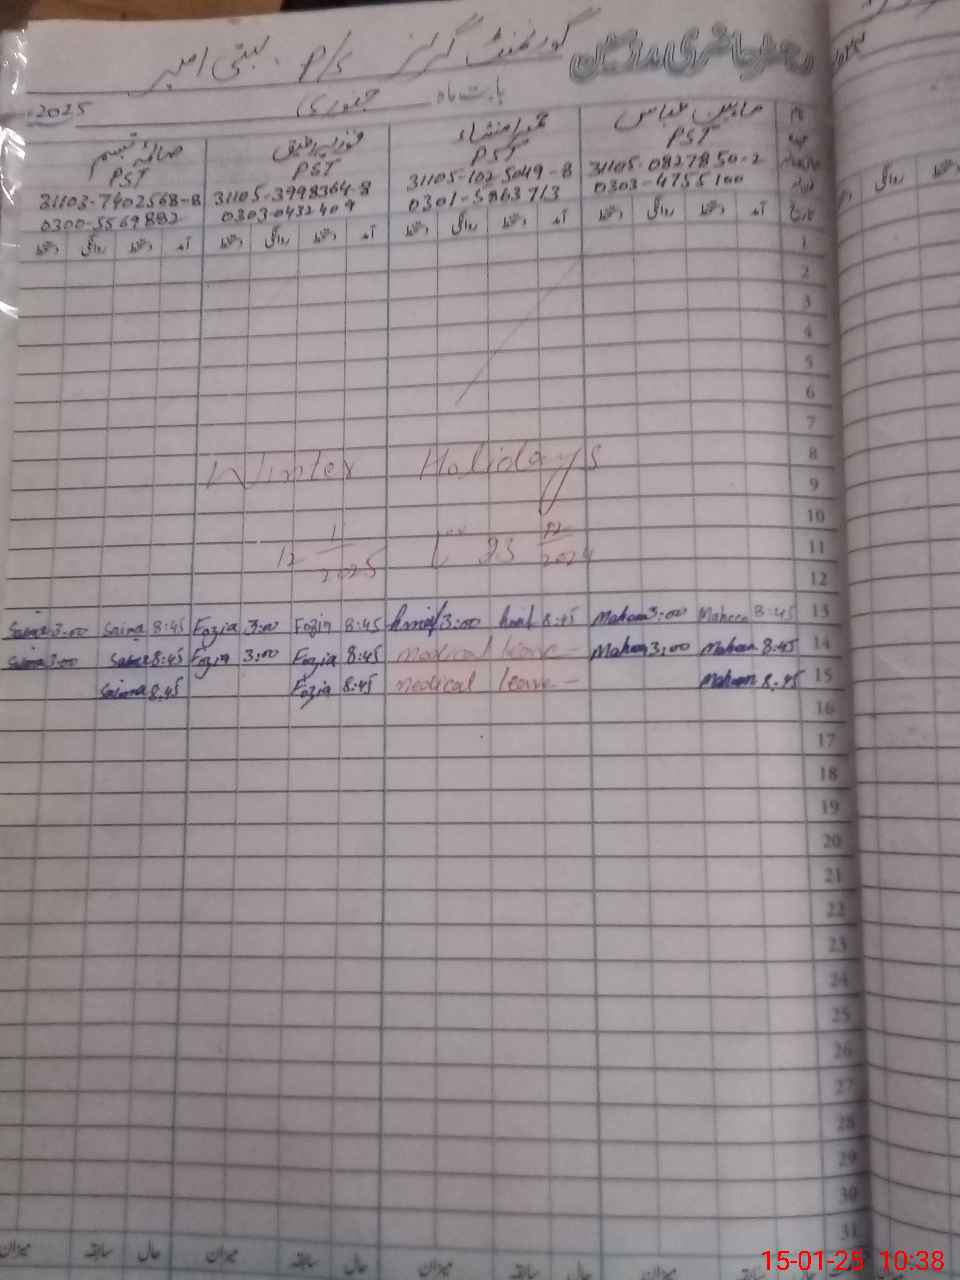 رجسٹر حاضری مدرسین گورنمنٹ گرلز P/S بستی امیر
بابت ماہ جنوری 2025
نام ماہین عباس حمیرا منشاء فوزیہ طیق صائمہ تبسم
عہدہ PST PST PST PST
31105-0827850-2 31105-1025049-8 31105-3998364-8 31103-7402568-8
0303-4755100 0301-5863713 0303-0432409 0300-5569882
تاریخ آمد دستخط روانگی دستخط آمد دستخط روانگی دستخط آمد دستخط روانگی دستخط آمد دستخط روانگی دستخط
1
2
3
4
5
6
7
8
Winter Holidays
9
10
11
23 12/2024 تا 12 1/2025
12
13 8:45 Maheen 3:00 Maheen 8:45 3:00 8:45 Fozia 3:00 Fozia 8:45 Saima 3:00 Saima
14 8:45 Maheen 3:00 Maheen medical leave 8:45 Fozia 3:00 Fozia 8:45 Saima 3:00 Saima
15 8:45 Maheen medical leave 8:45 Fozia 8:45 Saima
16
17
18
19
20
21
22
23
24
25
26
27
28
29
30
31
میزان حال سابقہ میزان حال سابقہ میزان حال سابقہ میزان
15-01-25 10:38